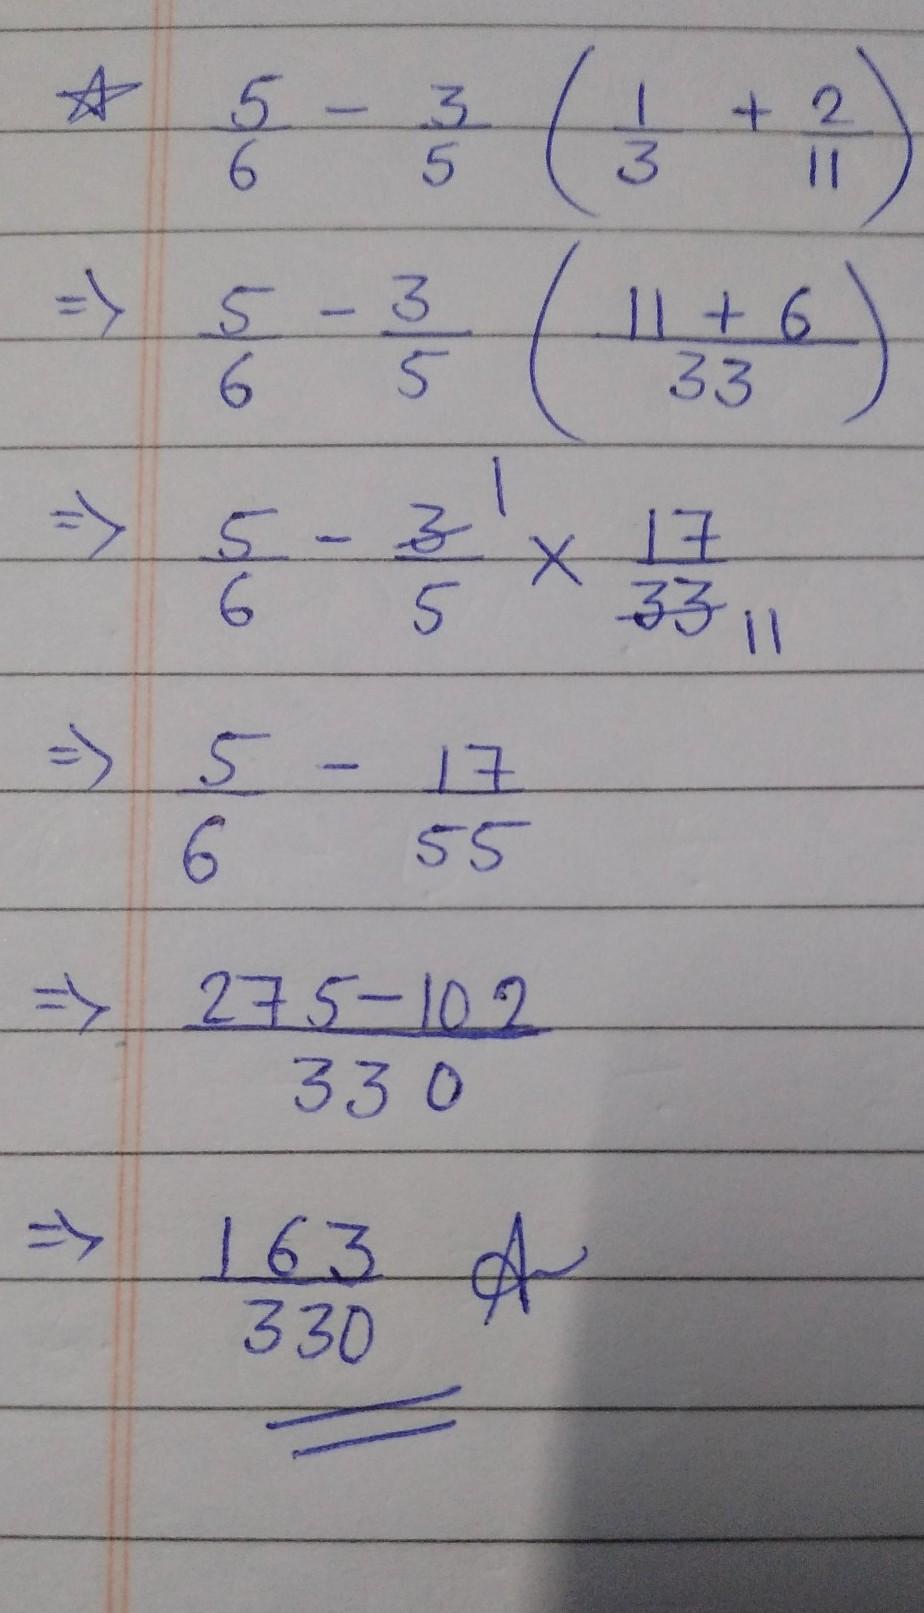 ☆ 5/6 - 3/5 (1/3 + 2/11)
=> 5/6 - 3/5 (11 + 6/33)
=> 5/6 - 3/5 1 × 17/33 11
=> 5/6 - 17/55
=> 275-102/330
=> 163/330 A